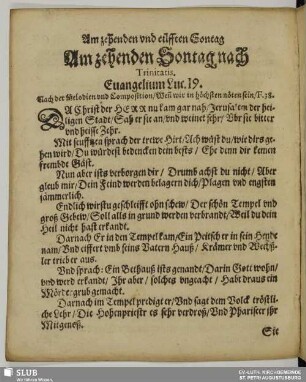 Am zehenden vnd eilfften Sontag
Am zehenden Sontag nach
Trinitatis.
Euangelium Luc. 19.
Nach der Melodien vnd Composition / Weñ wir in höchsten nöten sein / F. 38.
DA Christ der HERR nu kam gar nah / Jerusalem der hei-
ligen Stadt / Sah er sie an / vnd weinet sehr / Vber sie bitter
vnd heisse Zehr.
Mit seufftzen sprach der trewe Hirt / Ach wüst du / wie dirs ge-
hen wird / Du würdest bedencken dein bests / Ehe denn dir kemen
frembde Gäst.
Nun aber ists verborgen dir / Drumb achst du nicht / Aber
gleub mir / Dein Feind werden belagern dich / Plagen vnd engsten
jämmerlich.
Endlich wirstu geschleifft ohn schew / Der schön Tempel vnd
groß Gebew / Soll alls in grund werden verbrandt / Weil du dein
Heil nicht hast erkandt.
Darnach Er in den Tempel kam / Ein Peitsch er in sein Hende
nam / Vnd eiffert vmb seins Vatern Hauß / Krämer vnd Wechß-
ler trieb er aus.
Vnd sprach: Ein Bethauß ists genandt / Darin Gott wohn /
vnd werd erkandt / Ihr aber / solches vngeacht / Habt draus ein
Mördergrub gemacht.
Darnach im Tempel prediget er / Vnd sagt dem Volck tröstli-
che Lehr / Die Hohenpriester es sehr verdroß / Vnd Phariseer ihr
Mitgenoß.
Sie
SLUB
Wir führen Wissen.
EV.-LUTH. KIRCHGEMEINDE
ST. PETRI AUGUSTUSBURG